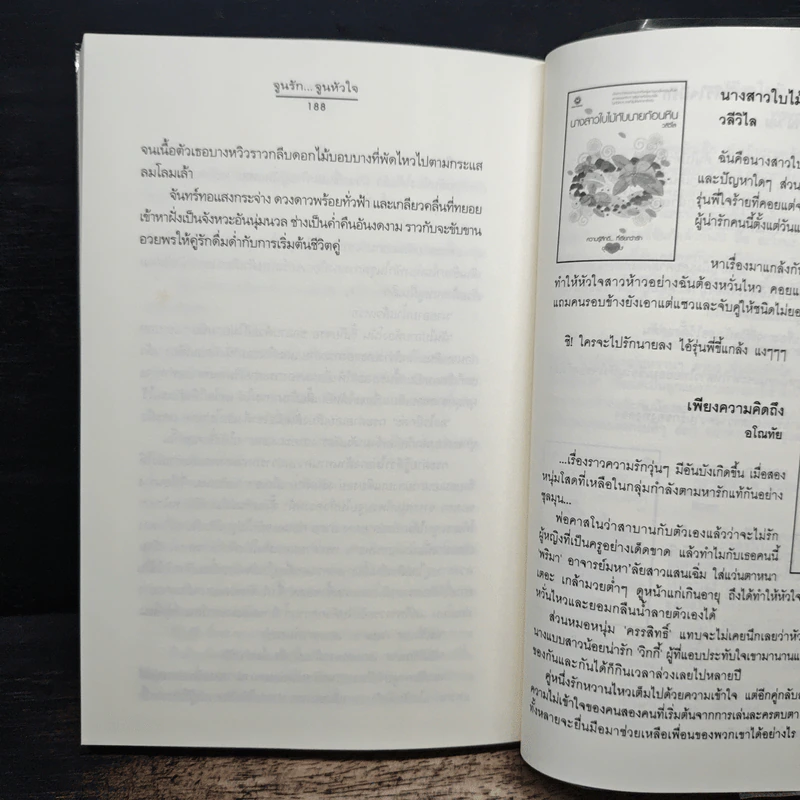 จูนรัก... จูนหัวใจ
188
จนเนื้อตัวเธอบางหวิวราวกลีบดอกไม้บอบบางที่พัดไหวไปตามกระแส
ลมโลมเล้า
จันทร์ทอแสงกระจ่าง ดวงดาวพร้อยทั่วฟ้า และเกลียวคลื่นที่ทยอย
เข้าหาฝั่งเป็นจังหวะอันนุ่มนวล ช่างเป็นค่ำคืนอันงดงาม ราวกับจะขับขาน
อวยพรให้คู่รักดื่มด่ำกับการเริ่มต้นชีวิตคู่
นางสาวใบไม้กับนายก้อนหิน
วลีวิไล
ความรู้สึกดี... ที่เรียกว่ารัก
นางสาวใบไม้
วลีวิไล
ฉันคือนางสาวใบ
และปัญหาใดๆ ส่วน
รุ่นพี่ใจร้ายที่คอยแต่จ
ผู้น่ารักคนนี้ตั้งแต่วันแ
หาเรื่องมาแกล้งกัน
ทำให้หัวใจสาวห้าวอย่างฉันต้องหวั่นไหว คอยแ
แถมคนรอบข้างยังเอาแต่แซวและจับคู่ให้ชนิดไม่ยอ
ชิ! ใครจะไปรักนายลง ไอ้รุ่นพี่ขี้แกล้ง แงๆๆๆ
เพียงความคิดถึง
อโณทัย
...เรื่องราวความรักวุ่นๆ มีอันบังเกิดขึ้น เมื่อสอง
หนุ่มโสดที่เหลือในกลุ่มกำลังตามหารักแท้กันอย่าง
ชุลมุน...
พ่อคาสโนว่าสาบานกับตัวเองแล้วว่าจะไม่รัก
ผู้หญิงที่เป็นครูอย่างเด็ดขาด แล้วทำไมกับเธอคนนี้
'พริมา' อาจารย์มหา'ลัยสาวแสนเฉิ่ม ใส่แว่นตาหนา
เตอะ เกล้ามวยต่ำๆ ดูหน้าแก่เกินอายุ ถึงได้ทำให้หัวใจ
หวั่นไหวและยอมกลืนน้ำลายตัวเองได้
ส่วนหมอหนุ่ม 'ครรสิทธิ์' แทบจะไม่เคยนึกเลยว่าหัว
นางแบบสาวน้อยน่ารัก 'วิกกี้' ผู้ที่แอบประทับใจเขามานานแ
ของกันและกันได้ก็กินเวลาล่วงเลยไปหลายปี
คู่หนึ่งรักหวานไหวเต็มไปด้วยความเข้าใจ แต่อีกคู่กลับเ
ความไม่เข้าใจของคนสองคนที่เริ่มต้นจากการเล่นละครตบตา
ทั้งหลายจะยื่นมือมาช่วยเหลือเพื่อนของพวกเขาได้อย่างไร